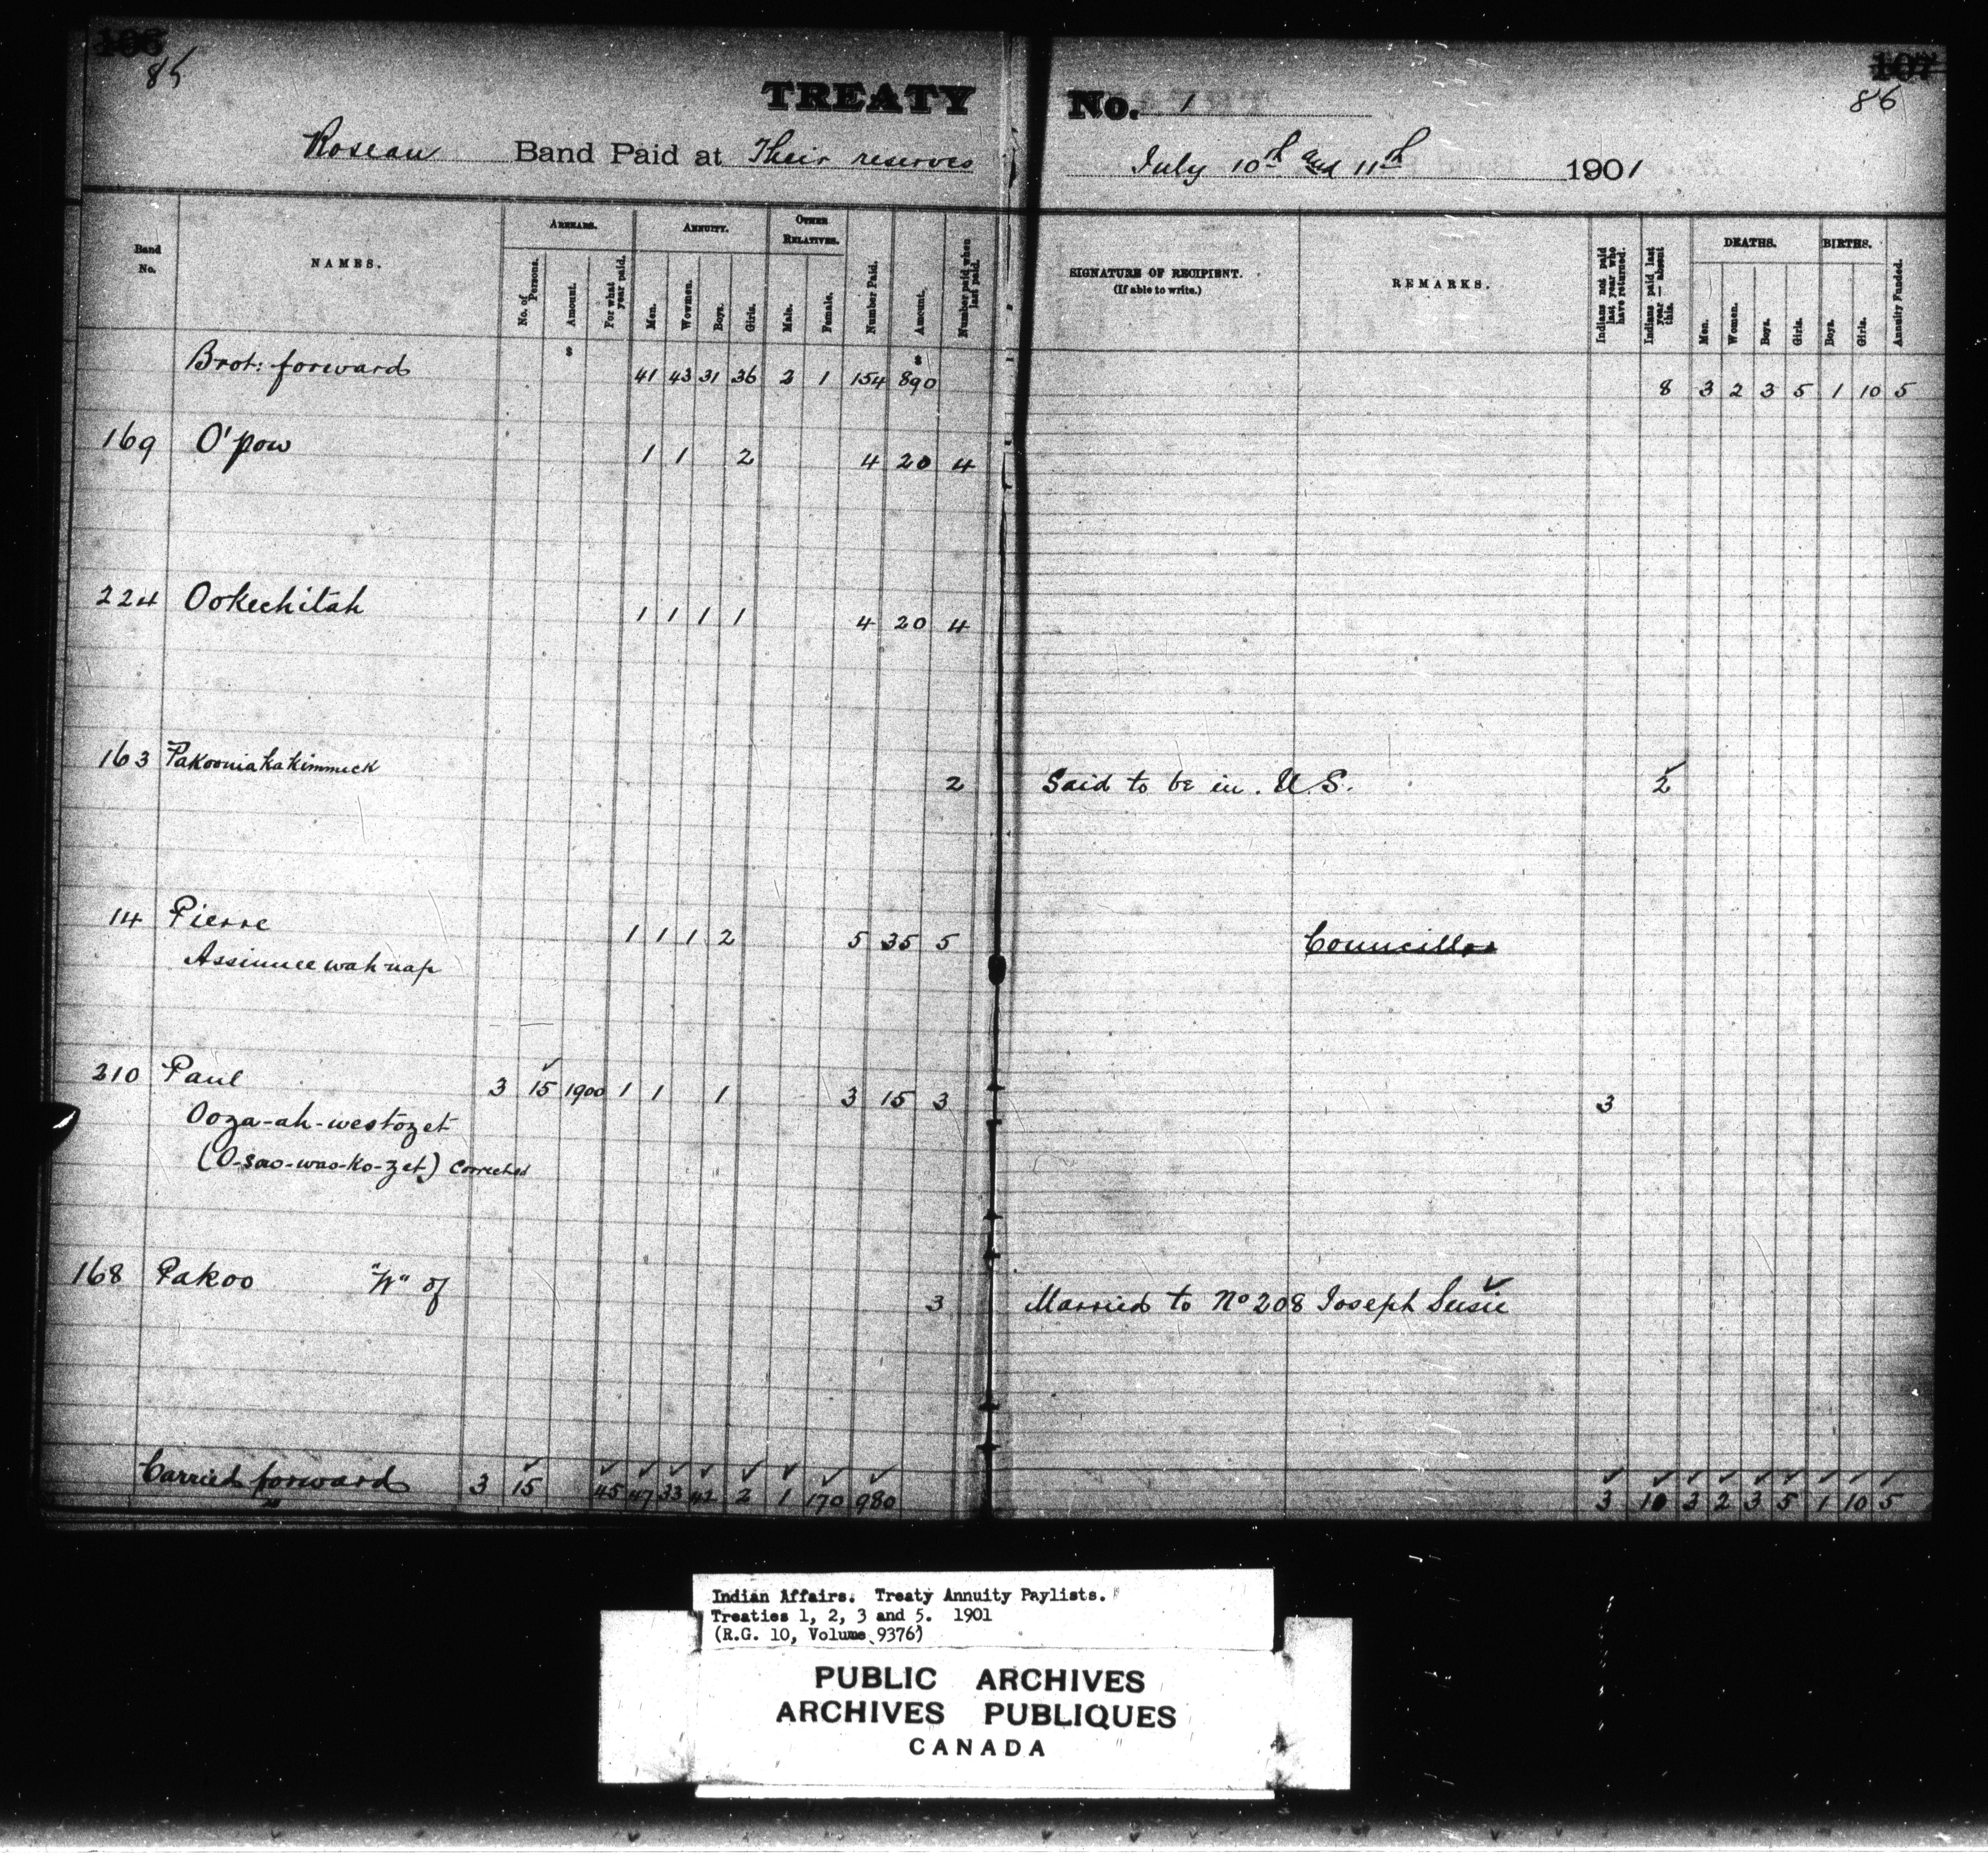 106 107
85 86
TREATY No. 1
Roseau Band Paid at Their reserves July 10th and 11th 1901
Band No. NAMES. ARREARS. No. of Persons. Amount. For what year paid. ANNUITY. Men. Women. Boys. Girls. OTHER RELATIVES. Male. Female. Number Paid. Amount. Number paid when last paid. SIGNATURE OF RECIPIENT. (If able to write.) REMARKS. Indians not paid last year who have returned. Indians paid last year — absent this. DEATHS. Men. Women. Boys. Girls. BIRTHS. Boys. Girls. Annuity Funded.
$ $
Brot: forward 41 43 31 36 2 1 154 890 8 3 2 3 5 1 10 5
169 O'pow 1 1 2 4 20 4
224 Ookechitah 1 1 1 1 4 20 4
163 Pakooniakakimmick 2 Said to be in U.S. 2
14 Pierre 1 1 1 2 5 35 5 Councillor
Assinneewahnap
210 Paul 3 15 1900 1 1 1 3 15 3 3
Ooza-ah-westozet
(O-sao-wao-ko-zet) corrected
168 Pakoo "W" of 3 Married to No 208 Joseph Susie
Carried forward 3 15 45 47 33 42 2 1 170 980 3 10 3 2 3 5 1 10 5
Indian Affairs. Treaty Annuity Paylists.
Treaties 1, 2, 3 and 5. 1901
(R.G. 10, Volume 9376)
PUBLIC ARCHIVES
ARCHIVES PUBLIQUES
CANADA